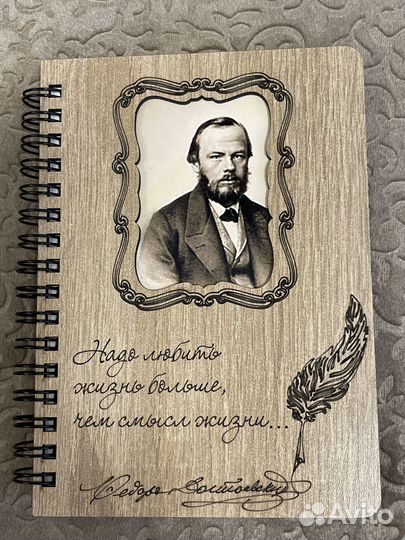 Надо любить
жизнь больше,
чем смысл жизни...
Федоръ Достоевский
Avito